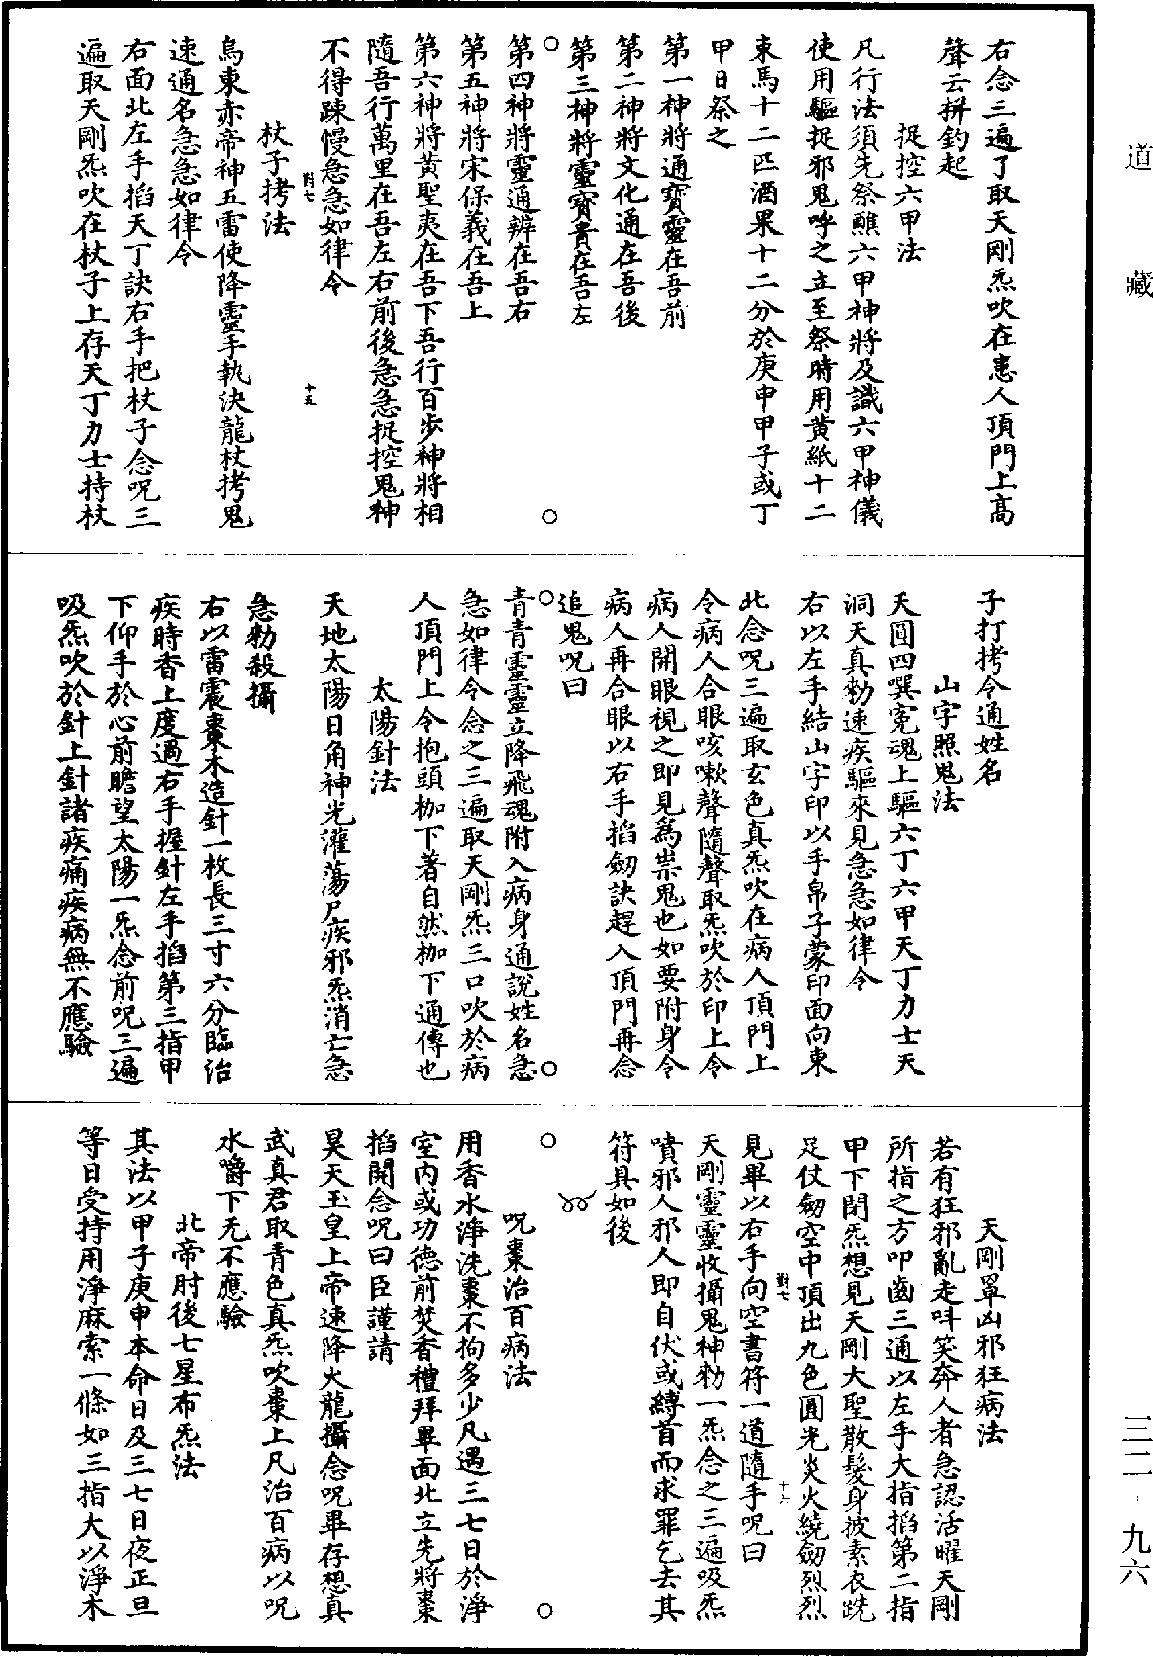 道藏
右念三遍了取天剛炁吹在患人頂門上高
聲云拼鈞起
捉控六甲法
凡行法須先祭醮六甲神將及識六甲神儀
使用驅捉邪鬼呼之立至祭時用黄紙十二
束馬十二匹酒果十二分於庚申甲子或丁
甲日祭之
第一神將通寶靈在吾前
第二神將文化通在吾後
第三神將靈寶貴在吾左
第四神將靈通辨在吾右
第五神將宋保義在吾上
第六神將黄聖夷在吾下吾行百步神將相
隨吾行萬里在吾左右前後急急捉控鬼神
不得踈慢急急如律令
對七
十五
杖子拷法
烏東赤帝神五雷使降靈手執決龍杖拷鬼
速通名急急如律令
右面北左手掐天丁訣右手把杖子念呪三
遍取天剛炁吹在杖子上存天丁力士持杖
子打拷令通姓名
山字照鬼法
天圓四噀寃魂上驅六丁六甲天丁力士天
洞天真勑速疾驅來見急急如律令
右以左手結山字印以手帛子蒙印面向東
北念呪三遍取玄色真炁吹在病人頂門上
令病人合眼咳嗽聲隨聲取炁吹於印上令
病人開眼視之即見爲祟鬼也如要附身令
病人再合眼以右手掐劒訣趕入頂門再念
追鬼呪曰
青青靈靈立降飛魂附入病身通說姓名急
急如律令念之三遍取天剛炁三口吹於病
人頂門上令抱頭枷下著自然枷下通傳也
太陽針法
天地太陽日角神光灌蕩尸疾邪炁消亡急
急勑殺攝
右以雷震棗木造針一枚長三寸六分臨治
疾時香上度過右手握針左手掐第三指甲
下仰手於心前瞻望太陽一炁念前呪三遍
吸炁吹於針上針諸疾痛疾病無不應驗
天剛罩凶邪狂病法
若有狂邪亂走呌笑奔人者急認活曜天剛
所指之方叩齒三通以左手大指掐第二指
甲下閉炁想見天剛大聖散髮身披素衣跣
足仗劒空中頂出九色圓光炎火繞劒烈烈
見畢以右手向空書符一道隨手呪曰
對七
十六
天剛靈靈收攝鬼神勑一炁念之三遍吸炁
噴邪人邪人即自伏或縛首而求罪乞去其
符具如後
呪棗治百病法
用香水淨洗棗不拘多少凡遇三七日於淨
室内或功德前焚香禮拜畢面北立先將棗
掐開念呪曰臣謹請
昊天玉皇上帝速降火龍攝念呪畢存想真
武真君取青色真炁吹棗上凡治百病以呪
水嚼下无不應驗
北帝肘後七星布炁法
其法以甲子庚申本命日及三七日夜正旦
等日受持用淨麻索一條如三指大以淨木
三二·九六